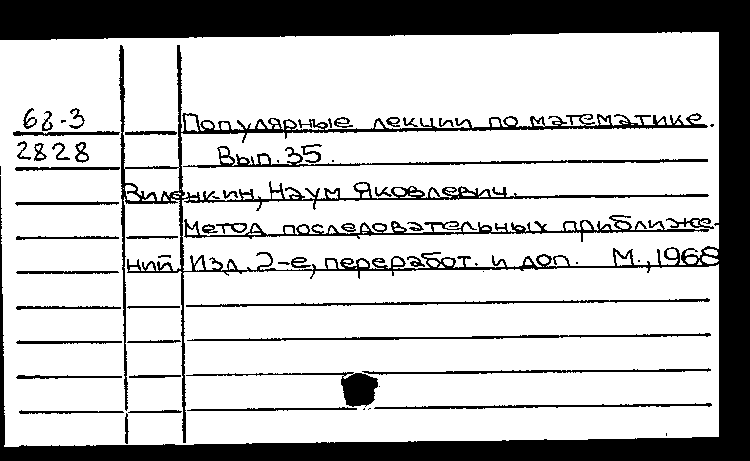 68-3 Популярные лекции по математике.
2828 Вып. 35.
Виленкин, Наум Яковлевич.
Метод последовательных приближе-
ний. Изд. 2-е, переработ. и доп. М., 1968